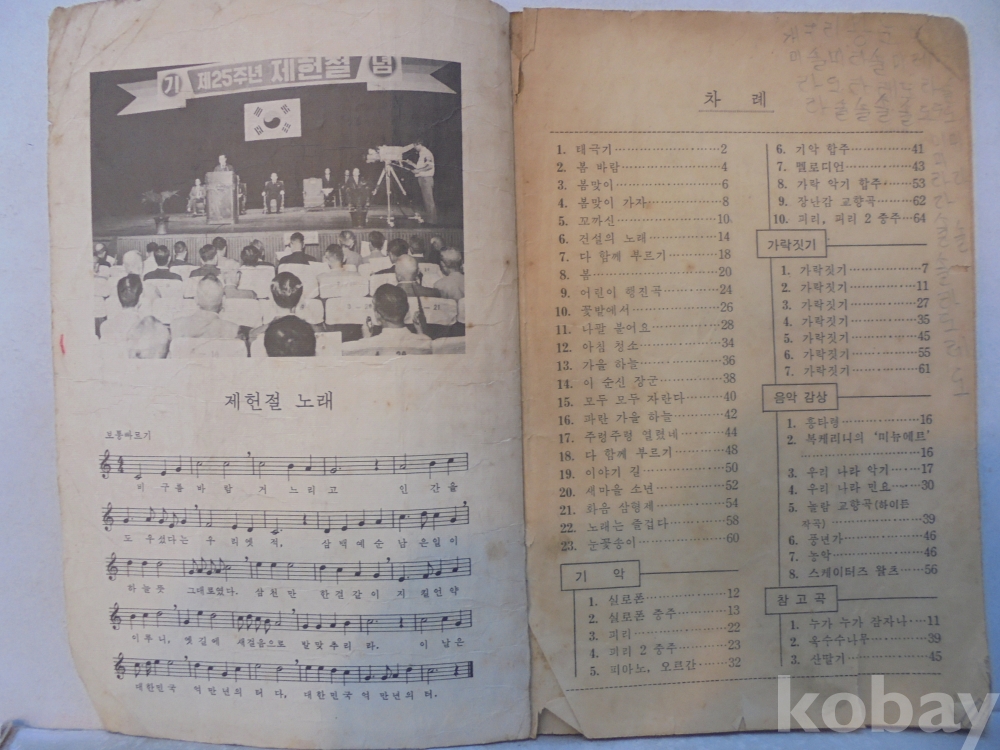 기 제25주년 제헌절 념
제헌절 노래
보통빠르기
비 구름 바람 거 느리고 인 간을
도 우셨다는 우 리옛 적, 삼백 예순 남 은일이
하늘뜻 그대로였다. 삼천만 한결같이 지 킬언약
이루니, 옛길에 새걸음으로 발맞추리 라. 이 날은
대한민국 억 만년의 터 다, 대한민국 억 만년의 터.
차 례
1. 태극기 2
2. 봄 바람 4
3. 봄맞이 6
4. 봄맞이 가자 8
5. 꼬까신 10
6. 건설의 노래 14
7. 다 함께 부르기 18
8. 봄 20
9. 어린이 행진곡 24
10. 꽃밭에서 26
11. 나팔 불어요 28
12. 아침 청소 34
13. 가을 하늘 36
14. 이 순신 장군 38
15. 모두 모두 자란다 40
16. 파란 가을 하늘 42
17. 주렁주렁 열렸네 44
18. 다 함께 부르기 48
19. 이야기 길 50
20. 새마을 소년 52
21. 화음 삼형제 54
22. 노래는 즐겁다 58
23. 눈꽃송이 60
기 악
1. 실로폰 12
2. 실로폰 중주 13
3. 피리 22
4. 피리 2 중주 23
5. 피아노, 오르간 32
6. 기악 합주 41
7. 멜로디언 43
8. 가락 악기 합주 53
9. 장난감 교향곡 62
10. 피리, 피리 2 중주 64
가락짓기
1. 가락짓기 7
2. 가락짓기 11
3. 가락짓기 27
4. 가락짓기 35
5. 가락짓기 45
6. 가락짓기 55
7. 가락짓기 61
음악 감상
1. 흥타령 16
2. 복케리니의 '미뉴에트'
16
3. 우리 나라 악기 17
4. 우리 나라 민요 30
5. 놀람 교향곡(하이든
작곡) 39
6. 풍년가 46
7. 농악 46
8. 스케이터즈 왈츠 56
참 고 곡
1. 누가 누가 잠자나 11
2. 옥수수나무 39
3. 산딸기 45
kobay